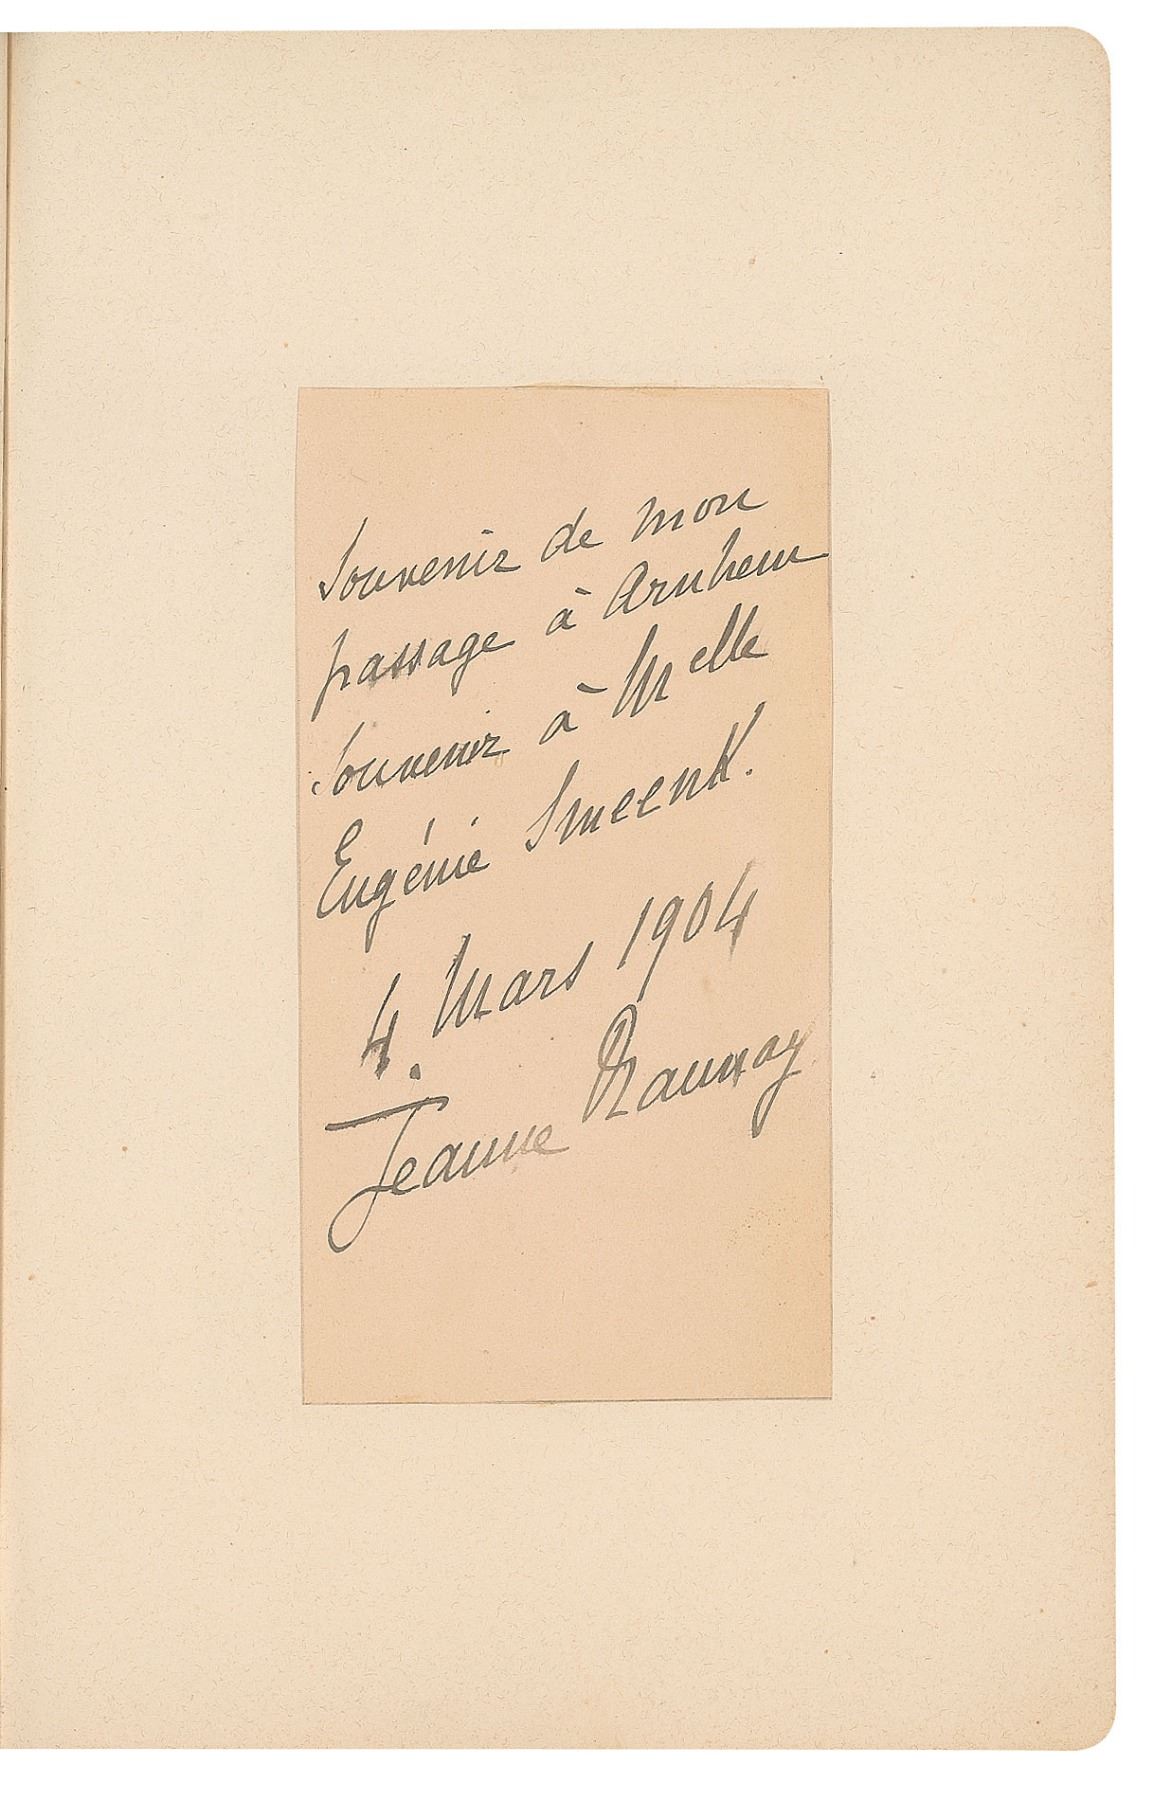 Souvenir de mon
passage à Arnhem
Souvenir à Melle
Eugénie Smeenk.
4. Mars 1904
Jeanne Raunay